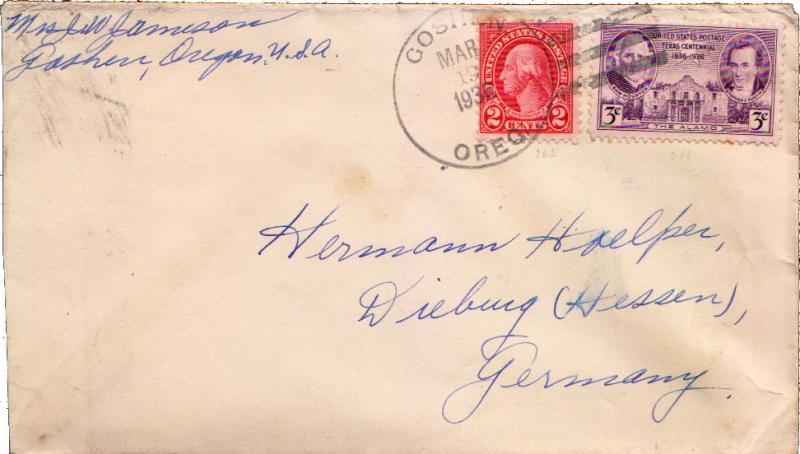 Mrs J W Jameson
Goshen, Oregon, U.S.A.
GOSHEN
MAR
19
193
OREG
UNITED STATES POSTAGE
2 CENTS 2
UNITED STATES POSTAGE
TEXAS CENTENNIAL
1836-1936
3¢ THE ALAMO 3¢
Hermann Hoelper,
Dieburg (Hessen),
Germany.